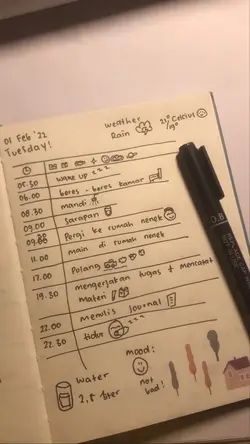 01 Feb '22
Tuesday!
weather
Rain
23° Celcius
19°
05.30 wake up zzz
06.00 beres - beres kamar
08.30 mandi
09.00 sarapan
09.30 Pergi ke rumah nenek
11.00 main di rumah nenek
17.00 Pulang
19.30 mengerjakan tugas + mencatat
materi
22.00 menulis Journal
22.30 tidur zzz
water
2,5 liter
mood:
not
bad!
0.8